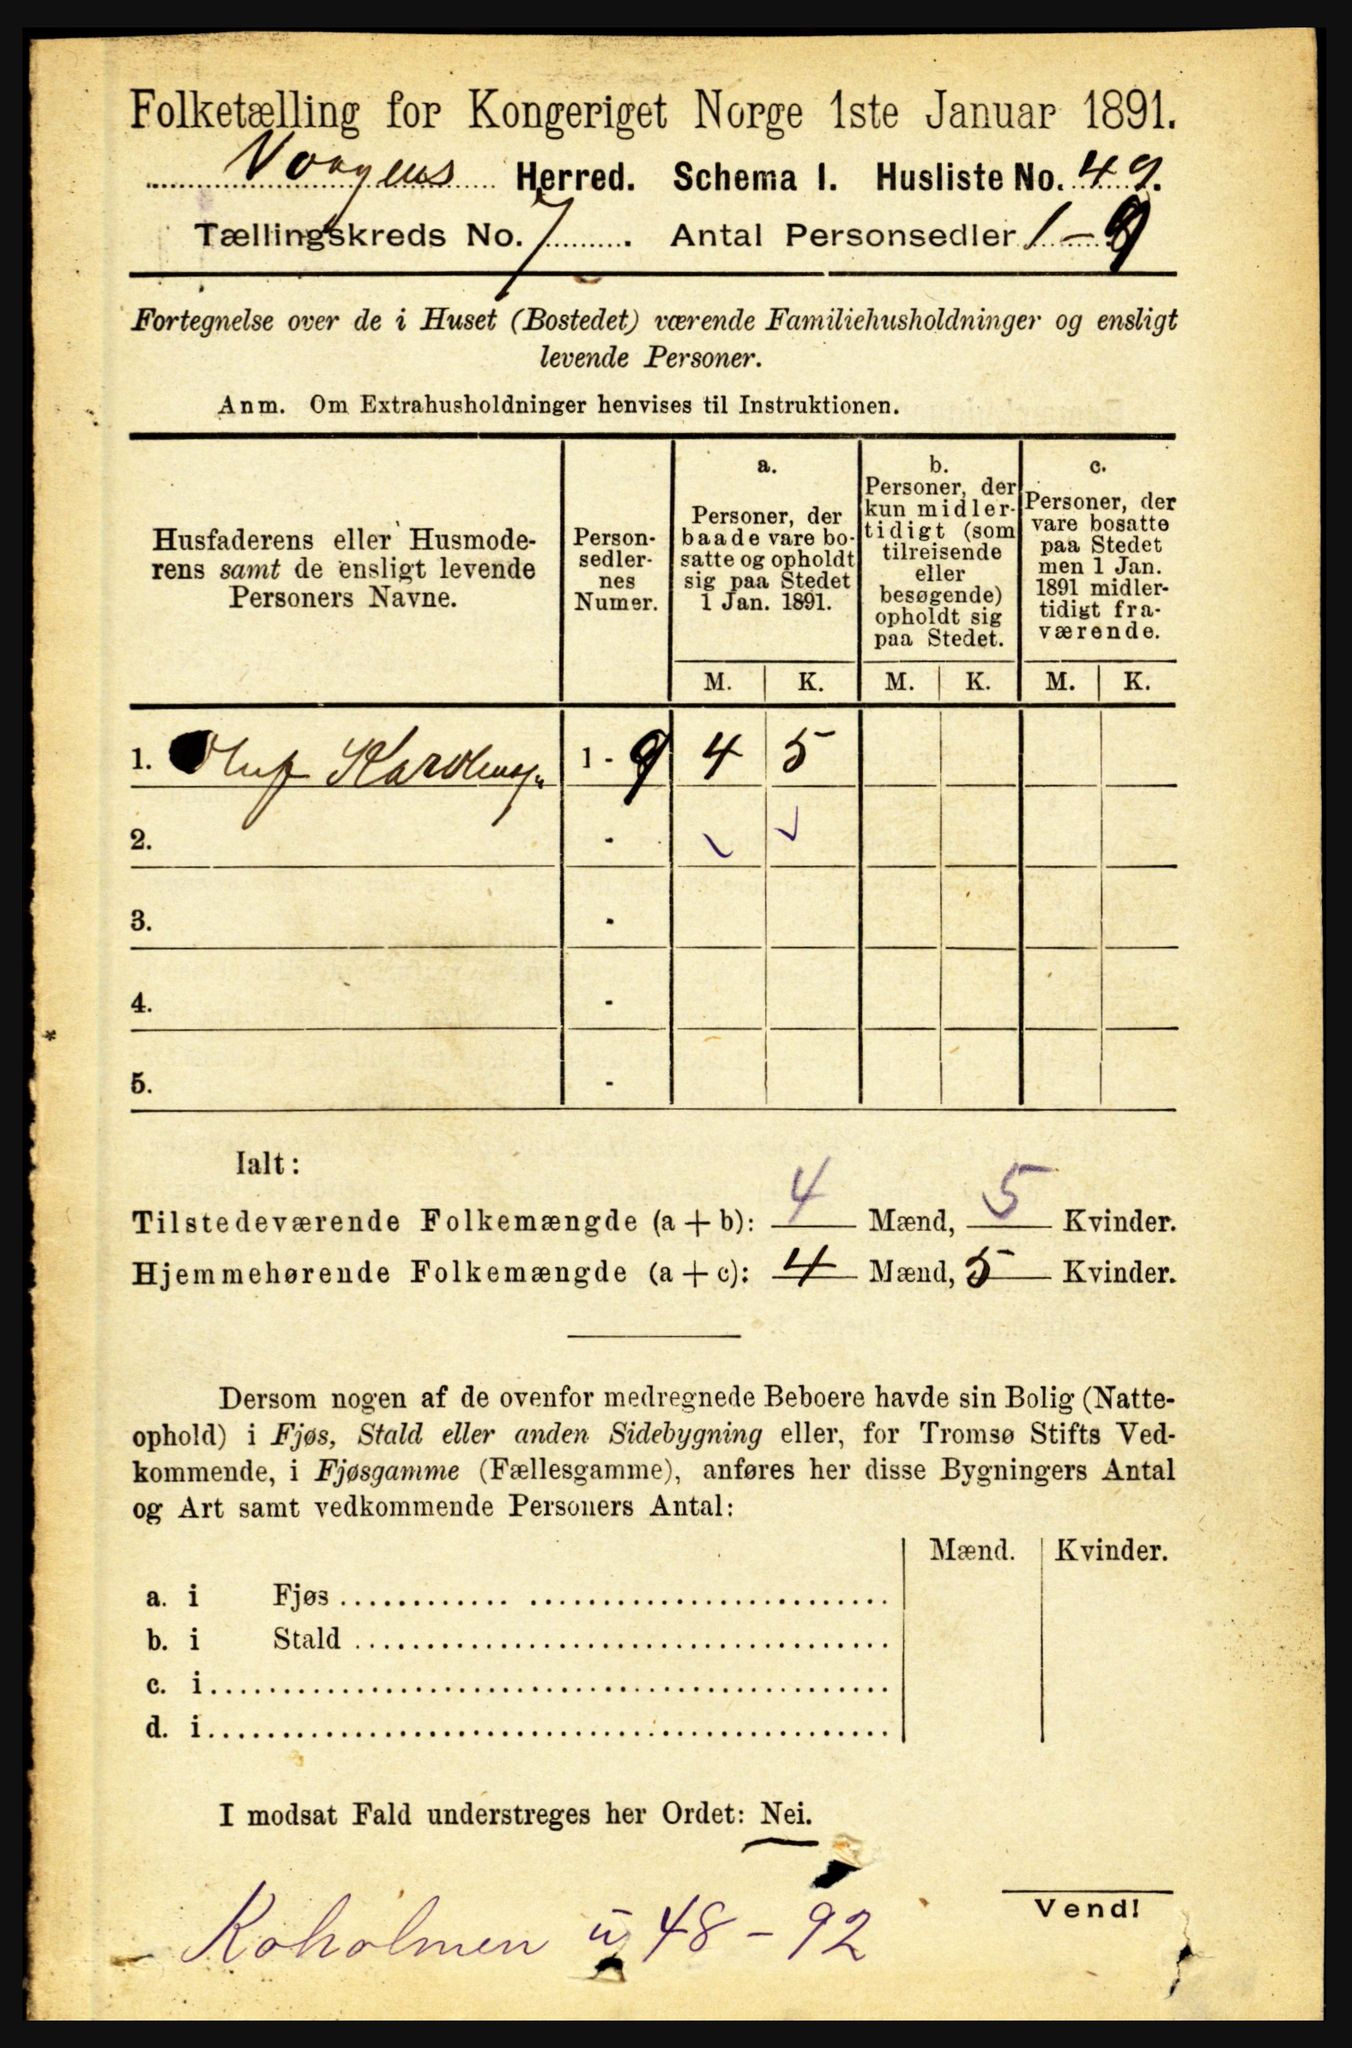 Folketælling for Kongeriget Norge 1ste Januar 1891.
Vaagens Herred. Schema 1. Husliste No. 49.
Tællingskreds No. 7. Antal Personsedler 1-9
Fortegnelse over de i Huset (Bostedet) værende Familiehusholdninger og ensligt
levende Personer.
Anm. Om Extrahusholdninger henvises til Instruktionen.
Husfaderens eller Husmode-
rens samt de ensligt levende
Personers Navne.
Person-
sedler-
nes
Numer.
a.
Personer, der
baade vare bo-
satte og opholdt
sig paa Stedet
1 Jan. 1891.
b.
Personer, der
kun midler-
tidigt (som
tilreisende
eller
besøgende)
opholdt sig
paa Stedet.
c.
Personer, der
vare bosatte
paa Stedet
men 1 Jan.
1891 midler-
tidigt fra-
værende.
M. K. M. K. M. K.
1. Oluf 1 - 9 4 5
2. - ✓ ✓
3. -
4. -
5. -
Ialt:
Tilstedeværende Folkemængde (a + b): 4 Mænd, 5 Kvinder.
Hjemmehørende Folkemængde (a + c): 4 Mænd, 5 Kvinder.
Dersom nogen af de ovenfor medregnede Beboere havde sin Bolig (Natte-
ophold) i Fjøs, Stald eller anden Sidebygning eller, for Tromsø Stifts Ved-
kommende, i Fjøsgamme (Fællesgamme), anføres her disse Bygningers Antal
og Art samt vedkommende Personers Antal:
Mænd. Kvinder.
a. i Fjøs
b. i Stald
c. i
d. i
I modsat Fald understreges her Ordet: Nei.
Vend!
Koholmen u 48 - 92